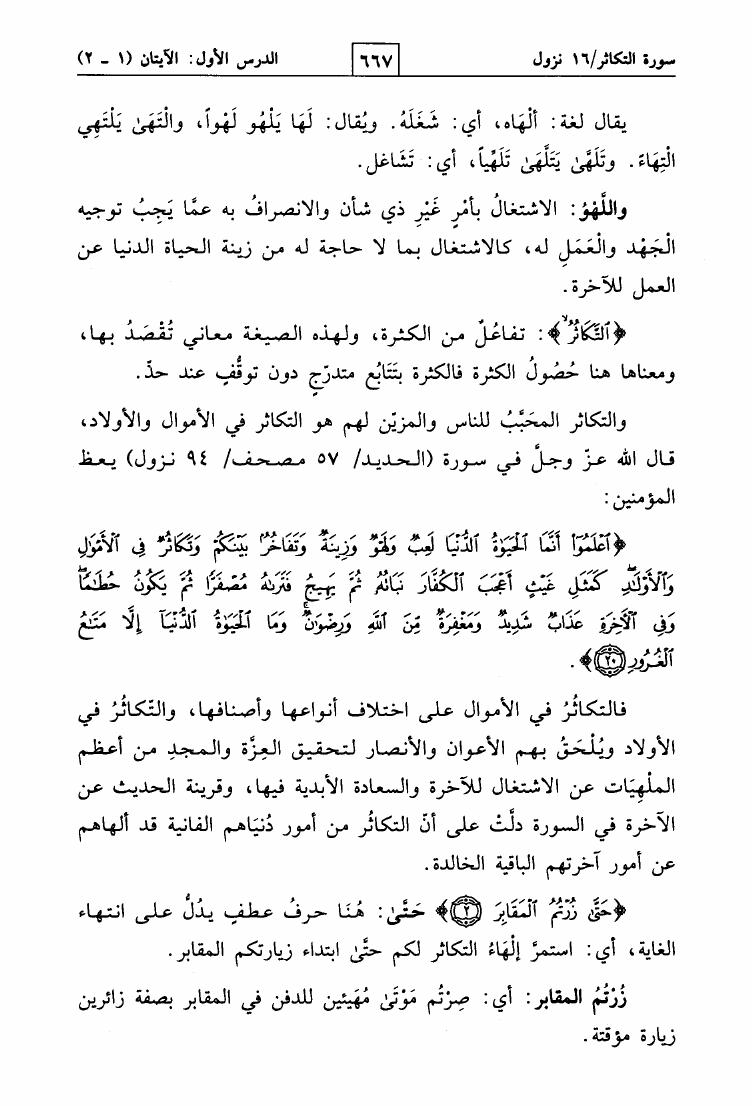 سورة التكاثر/١٦ نزول ٦٦٧ الدرس الأول: الآيتان (١ - ٢)
يقال لغة: ألْهَاه، أي: شَغَلَهُ. ويُقال: لَهَا يَلْهُو لَهْواً، والْتَهَىٰ يَلْتَهِي
الْتِهَاءً. وتَلَهَّىٰ يَتَلَهَّىٰ تَلَهِّياً، أي: تَشَاغل.
واللَّهْوُ: الاشتغالُ بأمْرٍ غَيْرِ ذي شأن والانصرافُ به عمَّا يَجِبُ توجيه
الْجَهْد والْعَمَلِ له، كالاشتغال بما لا حاجة له من زينة الحياة الدنيا عن
العمل للآخرة.
﴿ٱلتَّكَاثُرُ ۙ﴾: تفاعُلٌ من الكثرة، ولهذه الصيغة معاني تُقْصَدُ بها،
ومعناها هنا حُصُولُ الكثرة فالكثرة بتَتَابُع متدرّجٍ دون توقُّفٍ عند حدّ.
والتكاثر المحَبَّبُ للناس والمزيّن لهم هو التكاثر في الأموال والأولاد،
قال الله عزّ وجلَّ في سورة (الحديد/ ٥٧ مصحف/ ٩٤ نزول) يعظ
المؤمنين:
﴿ٱعْلَمُوٓا۟ أَنَّمَا ٱلْحَيَوٰةُ ٱلدُّنْيَا لَعِبٌ وَلَهْوٌ وَزِينَةٌ وَتَفَاخُرٌۢ بَيْنَكُمْ وَتَكَاثُرٌ فِى ٱلْأَمْوَٰلِ
وَٱلْأَوْلَـٰدِ ۖ كَمَثَلِ غَيْثٍ أَعْجَبَ ٱلْكُفَّارَ نَبَاتُهُۥ ثُمَّ يَهِيجُ فَتَرَىٰهُ مُصْفَرًّا ثُمَّ يَكُونُ حُطَـٰمًا ۖ
وَفِى ٱلْـَٔاخِرَةِ عَذَابٌ شَدِيدٌ وَمَغْفِرَةٌ مِّنَ ٱللَّهِ وَرِضْوَٰنٌ ۚ وَمَا ٱلْحَيَوٰةُ ٱلدُّنْيَآ إِلَّا مَتَـٰعُ
ٱلْغُرُورِ ٢٠﴾.
فالتكاثُرُ في الأموال على اختلاف أنواعها وأصنافها، والتّكاثُرُ في
الأولاد ويُلْحَقُ بهم الأعوان والأنصار لتحقيق العِزَّة والمجدِ من أعظم
الملْهِيَات عن الاشتغال للآخرة والسعادة الأبدية فيها، وقرينة الحديث عن
الآخرة في السورة دلَّتْ على أنّ التكاثُر من أمور دُنيَاهم الفانية قد ألهاهم
عن أمور آخرتهم الباقية الخالدة.
﴿حَتَّىٰ زُرْتُمُ ٱلْمَقَابِرَ ٢﴾ حَتَّىٰ: هُنَا حرفُ عطفٍ يدُلُّ على انتهاء
الغاية، أي: استمرَّ إلْهَاءُ التكاثر لكم حتَّىٰ ابتداء زيارتكم المقابر.
زُرْتُمُ المقابر: أي: صِرْتُم مَوْتَىٰ مُهَيئين للدفن في المقابر بصفة زائرين
زيارة مؤقتة.